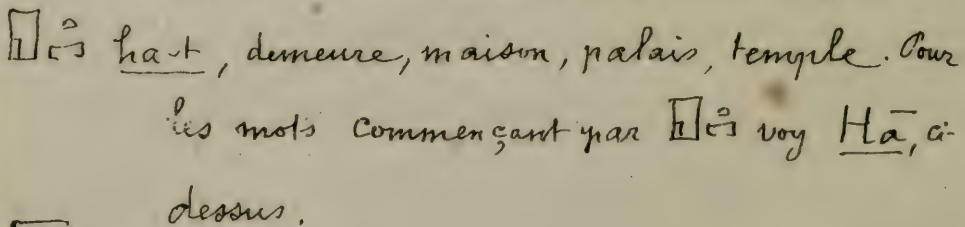 𓉗𓏏𓉐 ha-t, demeure, maison, palais, temple. Pour
les mots commençant par 𓉗𓏏𓉐 voy Hā, ci-
dessus.